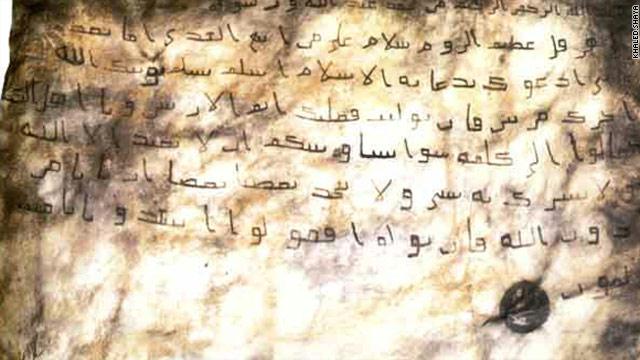 الله الرحمن الرحيم عبد الله و رسو
هرقل عظيم الروم سلام على من اتبع الهدى اما بعد
ى ادعوك بدعاية الاسلام اسلم تسلم يوتك الله
اجرك مرتين فان توليت فعليك اثم و يا اهل
تعالوا الى كلمة سوا بيننا و بينكم ان لا نعبد الا الله
و لا نشرك به شى و لا يتخذ بعضنا بعضا اربابا من
دون الله فان تولوا فقولوا اشهدوا بانا مس
لمون
KHALED SHAYA